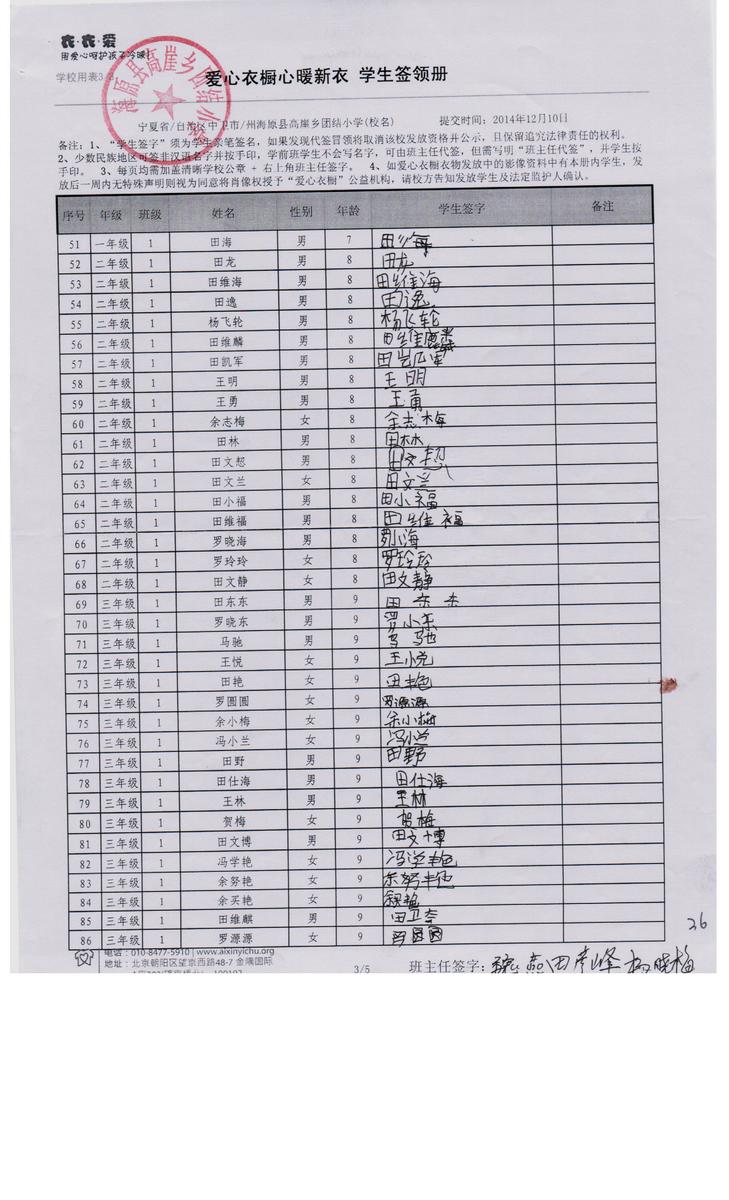 衣·衣·爱
用爱心呵护孩子冷暖!
学校用表3/3
海原县高崖乡团结小学
爱心衣橱心暖新衣 学生签领册
宁夏省/自治区中卫市/州海原县高崖乡团结小学(校名) 提交时间：2014年12月10日
备注：1、“学生签字”须为学生亲笔签名，如果发现代签冒领将取消该校发放资格并公示，且保留追究法律责任的权利。
2、少数民族地区可签非汉语名字并按手印，学前班学生不会写名字，可由班主任代签，但需写明“班主任代签”，并学生按
手印。 3、每页均需加盖清晰学校公章 + 右上角班主任签字。 4、如爱心衣橱衣物发放中的影像资料中有本册内学生，发
放后一周内无特殊声明则视为同意将肖像权授予“爱心衣橱”公益机构，请校方告知发放学生及法定监护人确认。
序号 年级 班级 姓名 性别 年龄 学生签字 备注
51 一年级 1 田海 男 7 田海
52 二年级 1 田龙 男 8 田龙
53 二年级 1 田维海 男 8 田维海
54 二年级 1 田逸 男 8 田逸
55 二年级 1 杨飞轮 男 8 杨飞轮
56 二年级 1 田维麟 男 8 田维麟
57 二年级 1 田凯军 男 8 田凯军
58 二年级 1 王明 男 8 王明
59 二年级 1 王勇 男 8 王勇
60 二年级 1 余志梅 女 8 余志梅
61 二年级 1 田林 男 8 田林
62 二年级 1 田文恝 男 8 田文恝
63 二年级 1 田文兰 女 8 田文兰
64 二年级 1 田小福 男 8 田小福
65 二年级 1 田维福 男 8 田维福
66 二年级 1 罗晓海 男 8 罗小海
67 二年级 1 罗玲玲 女 8 罗玲玲
68 二年级 1 田文静 女 8 田文静
69 三年级 1 田东东 男 9 田东东
70 三年级 1 罗晓东 男 9 罗小东
71 三年级 1 马驰 男 9 马驰
72 三年级 1 王悦 女 9 王小悦
73 三年级 1 田艳 女 9 田艳
74 三年级 1 罗圆圆 女 9 罗源源
75 三年级 1 余小梅 女 9 余小梅
76 三年级 1 冯小兰 女 9 冯小兰
77 三年级 1 田野 男 9 田野
78 三年级 1 田仕海 男 9 田仕海
79 三年级 1 王林 男 9 王林
80 三年级 1 贺梅 女 9 贺梅
81 三年级 1 田文博 男 9 田文博
82 三年级 1 冯学艳 女 9 冯学艳
83 三年级 1 余努艳 女 9 余努艳
84 三年级 1 余买艳 女 9
85 三年级 1 田维麒 男 9
86 三年级 1 罗源源 女 9
36
电话：010-8477-5910 | www.aixinyichu.org
地址：北京朝阳区望京西路48-7 金隅国际
3/5
班主任签字： 田彦峰 杨晓梅